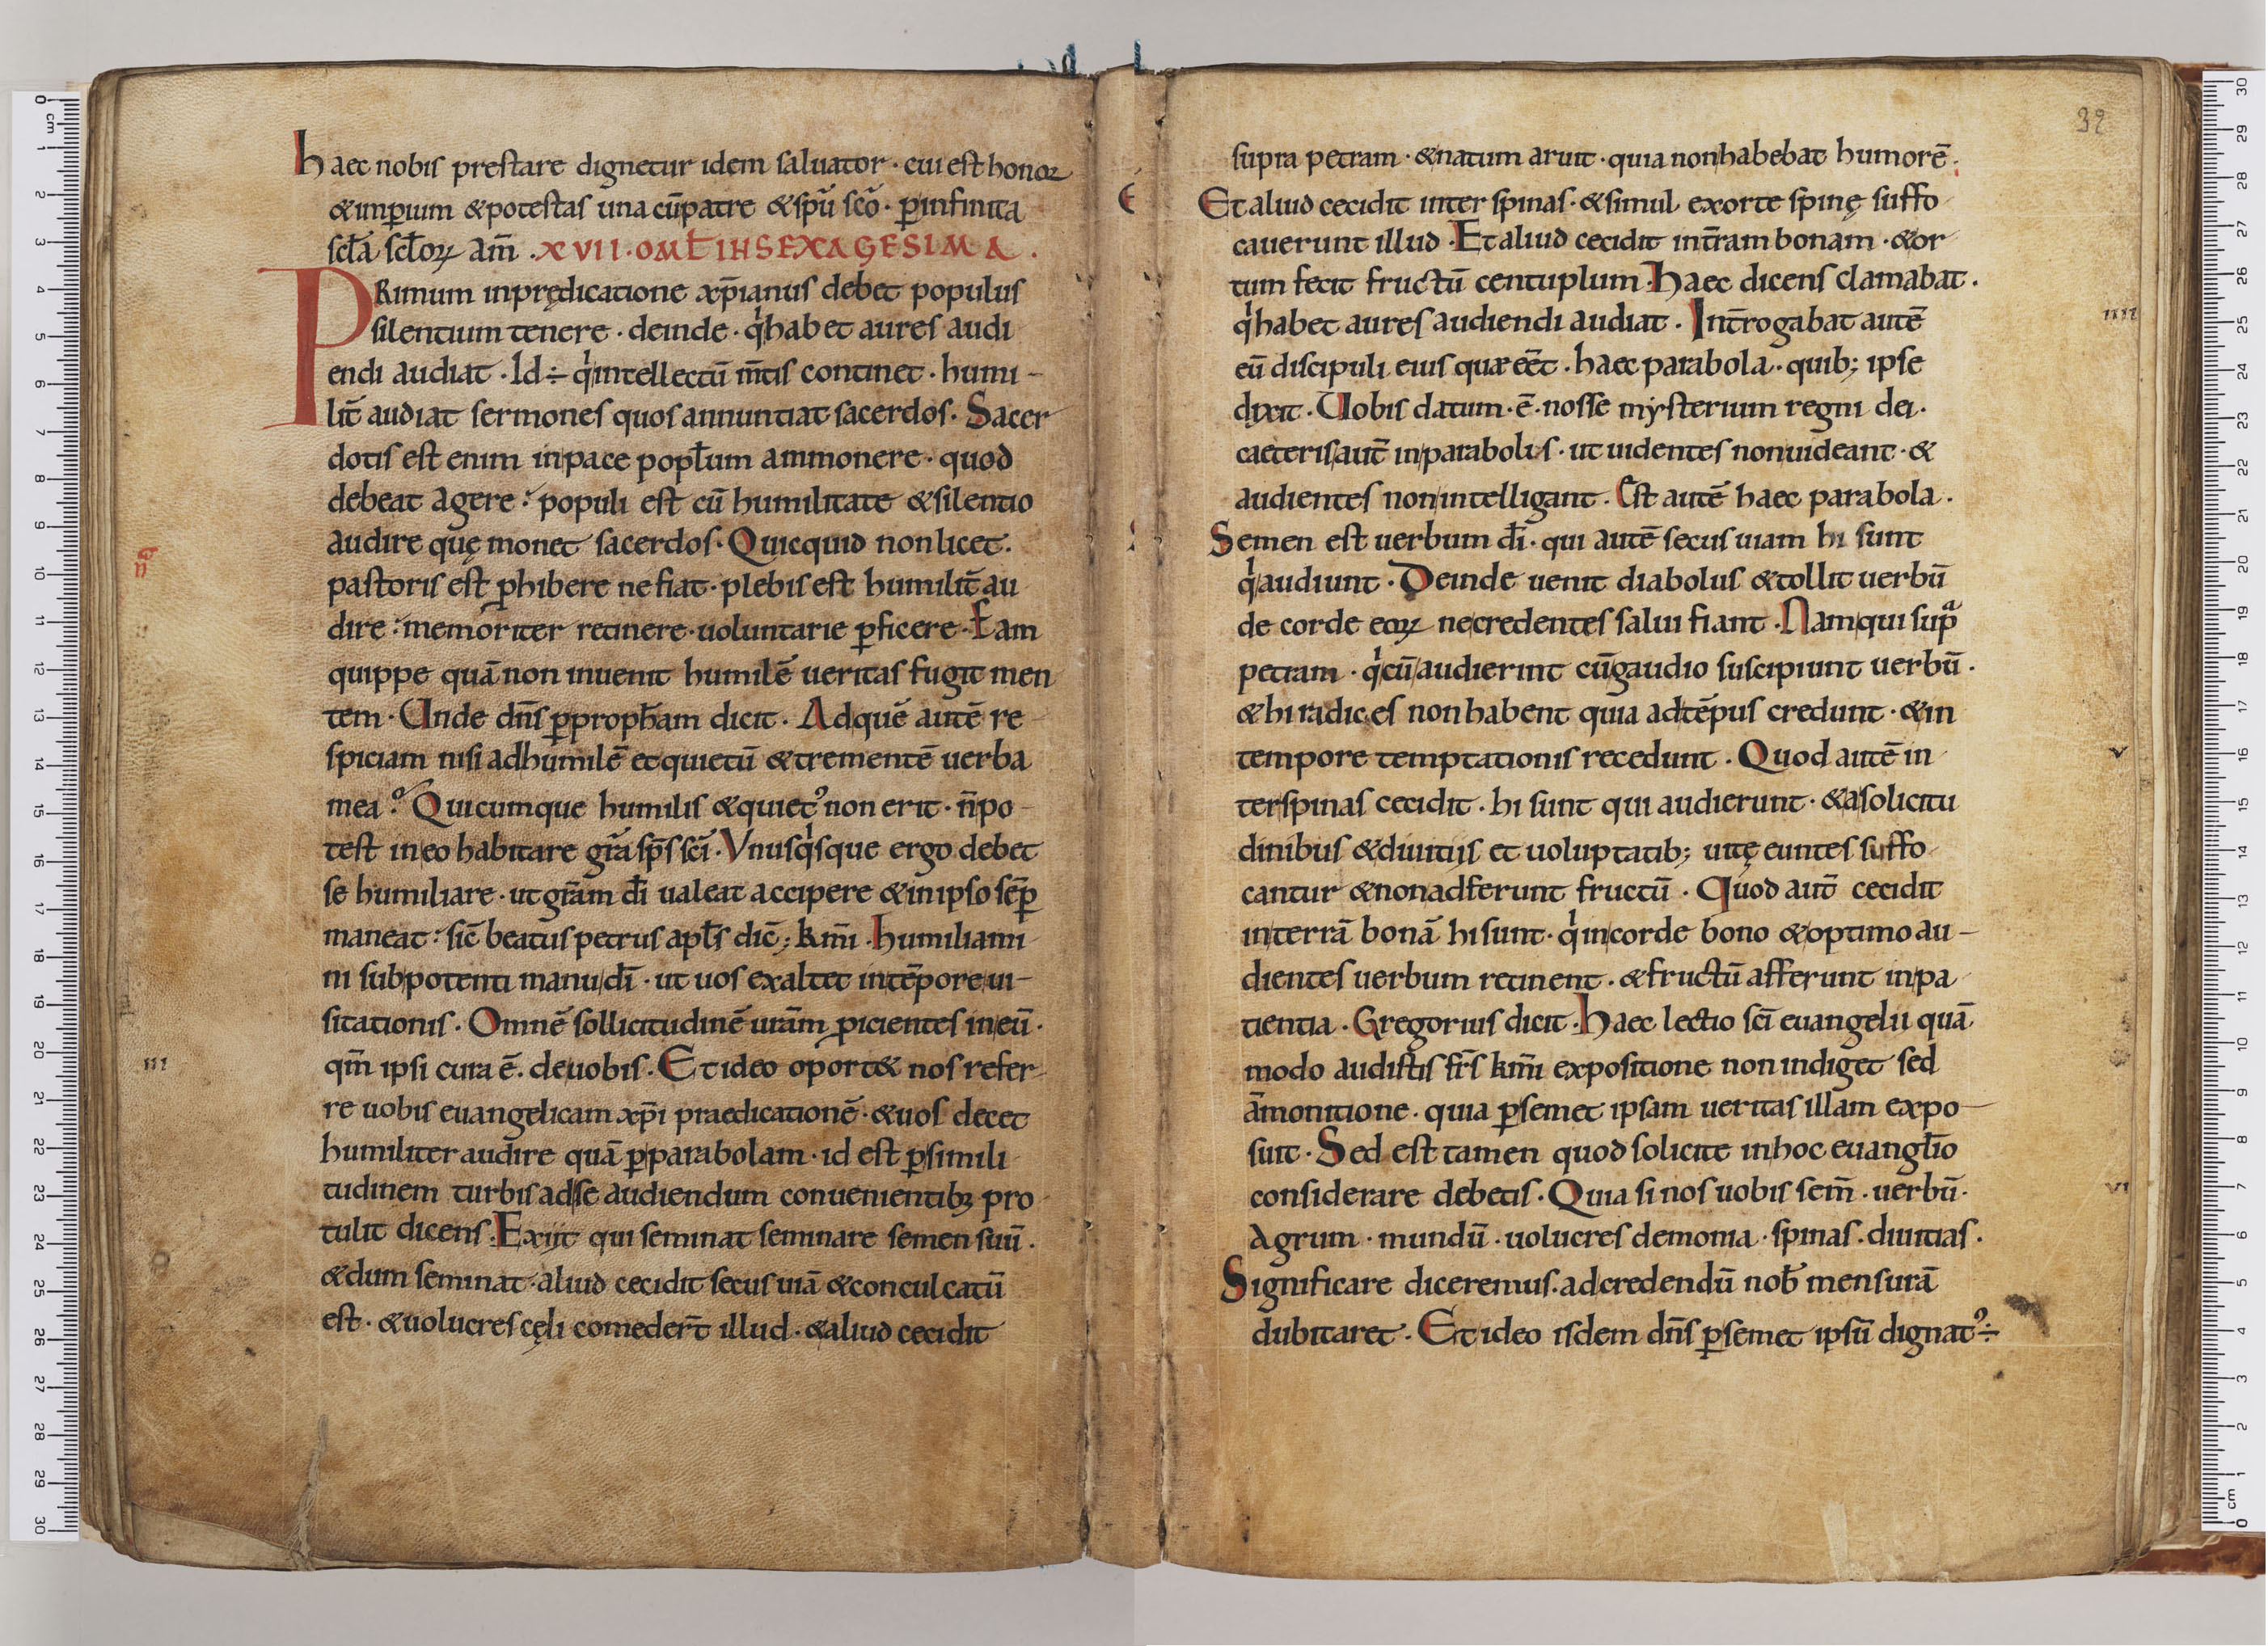 haec nobis prestare dignetur idem saluator · cui est honor
& imp̄ium & potestas una cū patre & spū scō · p̄ infinita
scła scłoꝝ am̄ . XVII · OMŁ IN SEXAGESIMA .
PRimum in prędicatione xp̄ianus debet populus
silentium tenere · deinde · qͥ habet aures audi
endi audiat · Id ÷ qͥ intellectū m̄tis continet · humi-
lit̄ audiat sermones quos annuntiat sacerdos · Sacer
dotis est enim in pace popłum ammonere · quod
debeat agere : populi est cū humilitate & silentio
audire quę monet sacerdos · Quicquid non licet ·
pastoris est ꝓhibere ne fiat · plebis est humilit̄ au
dire : memoriter retinere · uoluntarie ꝑficere · Eam
quippe quā non inuenit humilē ueritas fugit men
tem · Unde dn̄s ꝑ prophām dicit · Ad quē autē re
spiciam nisi ad humilē et quietū & trementē uerba
mea ? Quicumque humilis & quiet᾽ non erit · n̄ po-
test in eo habitare gr̄a sp̄s sc̄i · Vnusqͥsque ergo debet
se humiliare · ut gr̄am dī ualeat accipere & in ipso sēp̄
maneat : sic̄ beatus petrus apłs dic̄ ; km̄i · humiliami
ni sub potenti manu dī · ut uos exaltet in tēpore ui-
sitationis · Omnē sollicitudinē ur̄am ꝓicientes in eū ·
qm̄ ipsi cura ē . de uobis · Et ideo oport& nos refer-
re uobis euangelicam xp̄i praedicationē · & uos decet
humiliter audire quā ꝑ parabolam · id est ꝑ simili
tudinem turbis ad se audiendum conuenientibꝫ pro
tulit dicens · Exiit qui seminat seminare semen suū .
& dum seminat · aliud cecidit secus uiā & conculcatū
est · & uolucres cęli comeder̄t illud · & aliud cecidit
iii
32
supra petram · & natum aruit · quia non habebat humorē .
Et aliud cecidit inter spinas · & simul exorte spinę suffo
cauerunt illud · Et aliud cecidit in t̄ram bonam · & or
tum fecit fructū centuplum · Haec dicens clamabat .
qͥ habet aures audiendi audiat · Int̄rogabat autē
eū discipuli eius quæ eēt · haec parabola · quib; ipse
dixit · Uobis datum · ē · nosse mysterium regni dei .
caeteris aut̄ in parabolis · ut uidentes non uideant · &
audientes non intelligant · Est autē haec parabola .
Semen est uerbum dī · qui autē secus uiam hi sunt
qͥ audiunt · Deinde uenit diabolus & tollit uerbū
de corde eoꝝ ne credentes salui fiant · Nam qui supᵃ
petram · qͥ cū audierint cū gaudio suscipiunt uerbū .
& hi radices non habent quia ad tēpus credunt · & in
tempore temptationis recedunt · Quod autē in
ter spinas cecidit · hi sunt qui audierunt · & a solicitu
dinibus & diuitiis et uoluptatib; uitę euntes suffo
cantur & non adferunt fructū · Quod aut̄ cecidit
in terrā bonā hi sunt · qͥ in corde bono & optimo au-
dientes uerbum retinent · & fructū afferunt in pa
tientia · Gregorius dicit · Haec lectio sc̄i euangelii quā
modo audistis fr̄s km̄i expositione non indiget sed
āmonitione · quia ꝑ semet ipsam ueritas illam expo-
suit · Sed est tamen quod solicite in hoc euangłio
considerare debetis · Quia si nos uobis sem̄ · uerbū ·
Agrum · mundū · uolucres demonia · spinas · diuitias .
Significare diceremus · ad credendū nob̄ mensurā
dubitaret · Et ideo isdem dn̄s ꝑ semet ipsū dignat᾽ ÷
iiii
v
vi